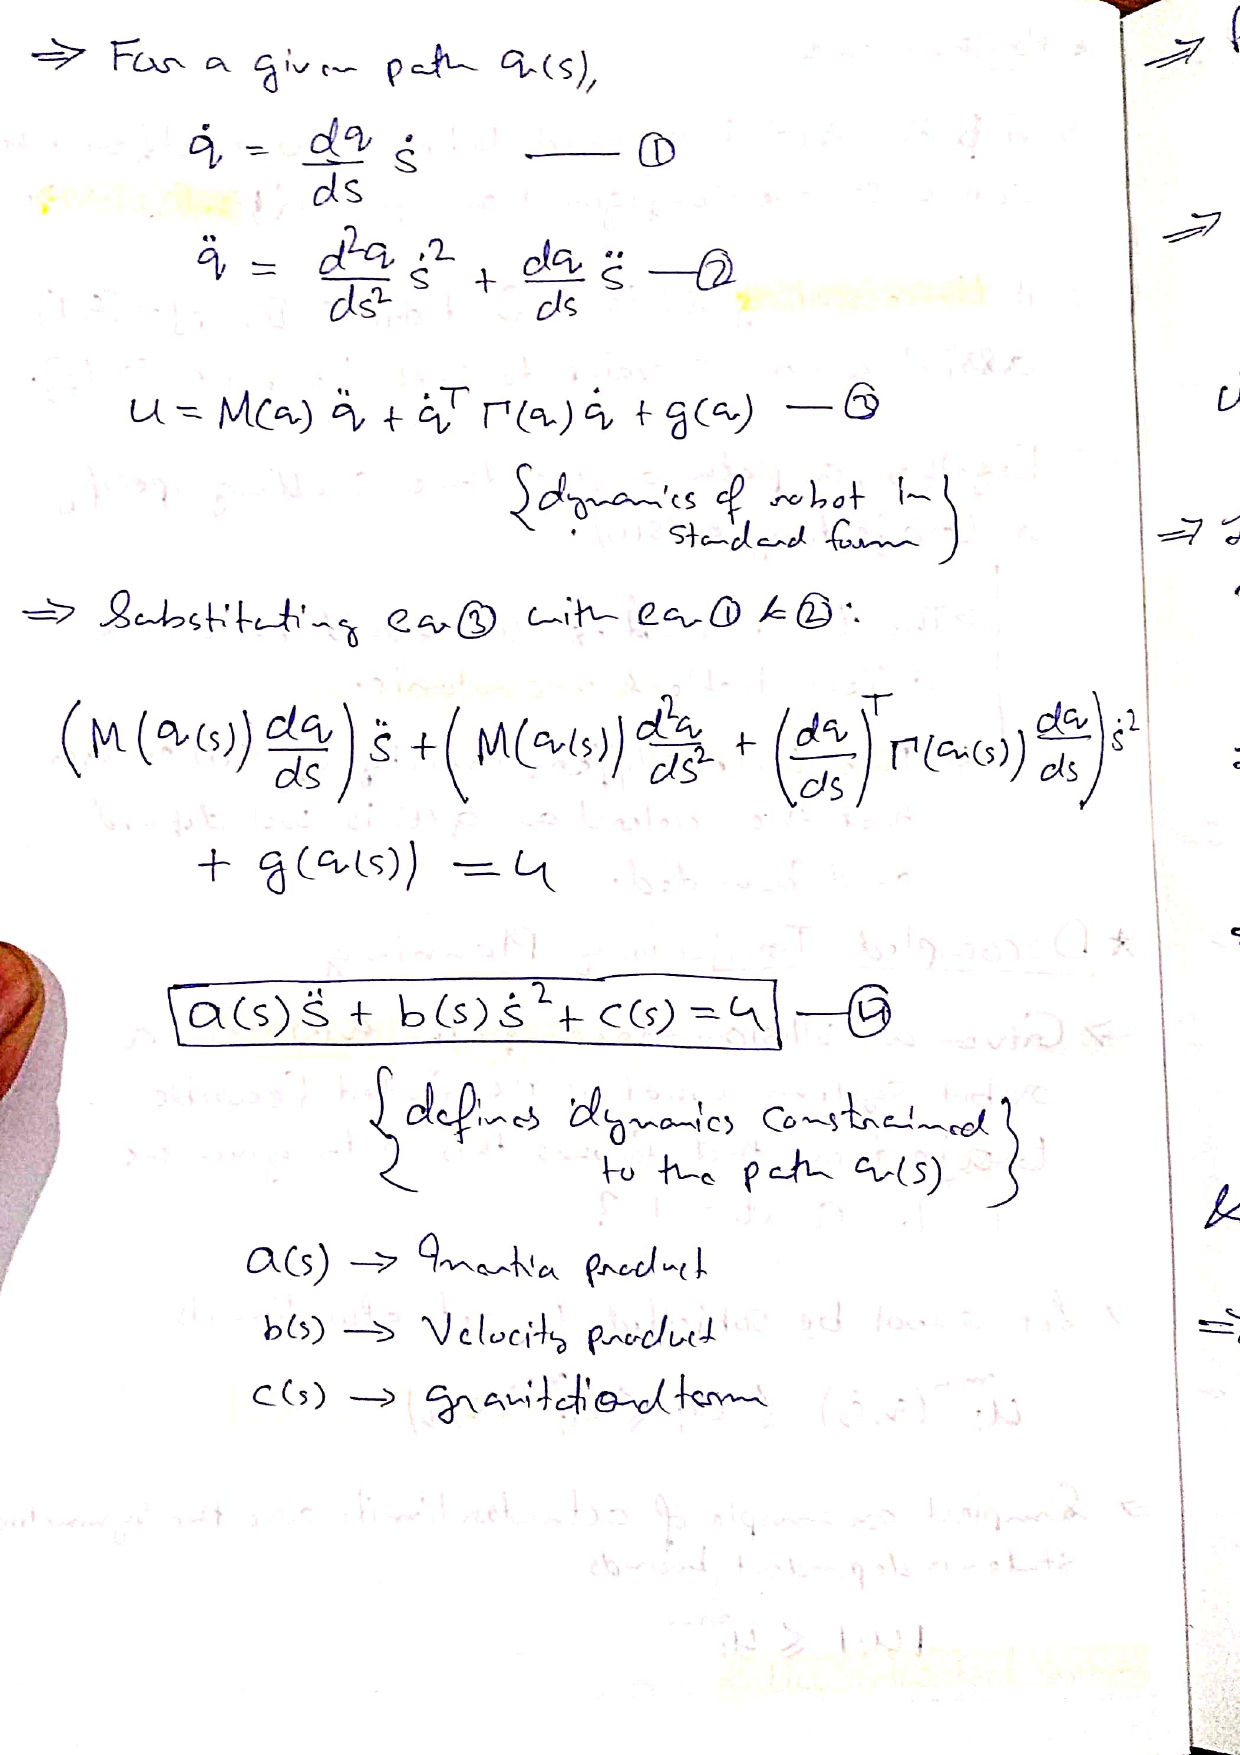 ⇒ For a given path q(s),
q̇ = dq/ds ṡ — ①
q̈ = d²q/ds² ṡ² + dq/ds s̈ — ②
u = M(q) q̈ + q̇ᵀ Γ(q) q̇ + g(q) — ③
{dynamics of robot in
standard form}
⇒ Substituting eq ③ with eq ① & ②:
(M(q(s)) dq/ds) s̈ + (M(q(s)) d²q/ds² + (dq/ds)ᵀ Γ(q(s)) dq/ds) ṡ²
+ g(q(s)) = u
a(s) s̈ + b(s) ṡ² + c(s) = u — ④
{defines dynamics constrained
to the path q(s)}
a(s) → Inertia product
b(s) → Velocity product
c(s) → gravitational term